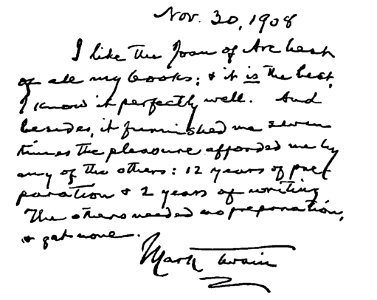 Nov. 30, 1908
I like the Joan of Arc best
of all my books; & it is the best;
I know it perfectly well. And
besides, it furnished me seven
times the pleasure afforded me by
any of the others: 12 years of pre-
paration & 2 years of writing.
The others needed no preparation,
& got none.
Mark Twain